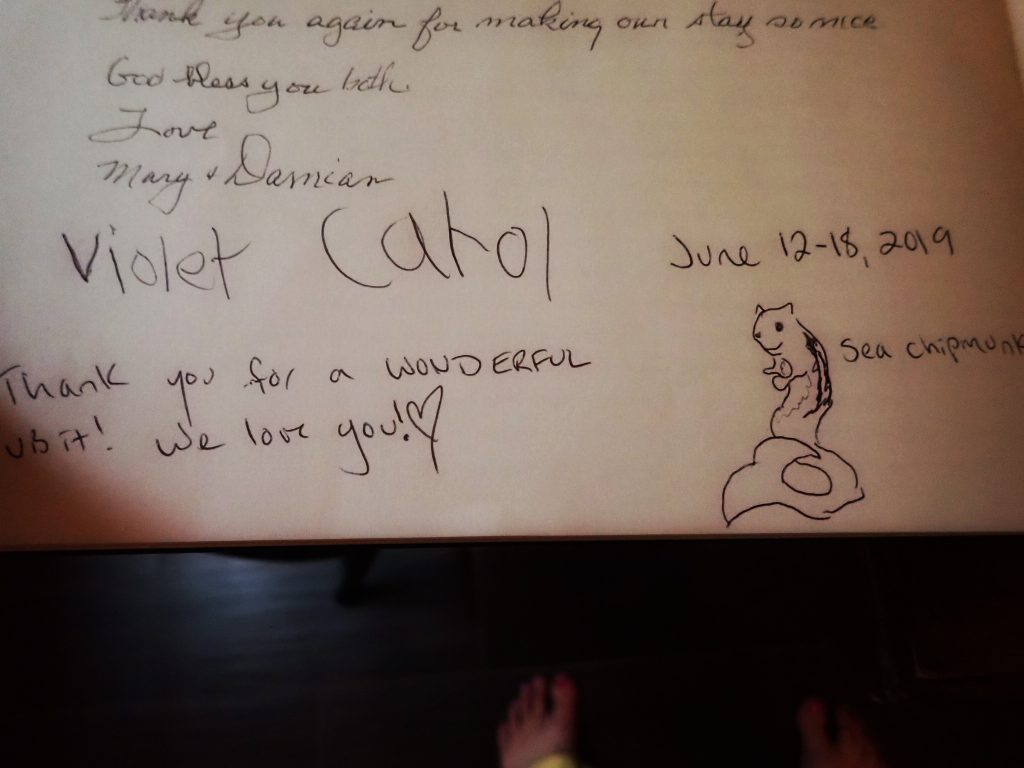 Thank you again for making our stay so nice
God bless you both.
Love
Mary & Damian
Violet Carol
June 12-18, 2019
Sea chipmunk
Thank you for a WONDERFUL
We love you!♡